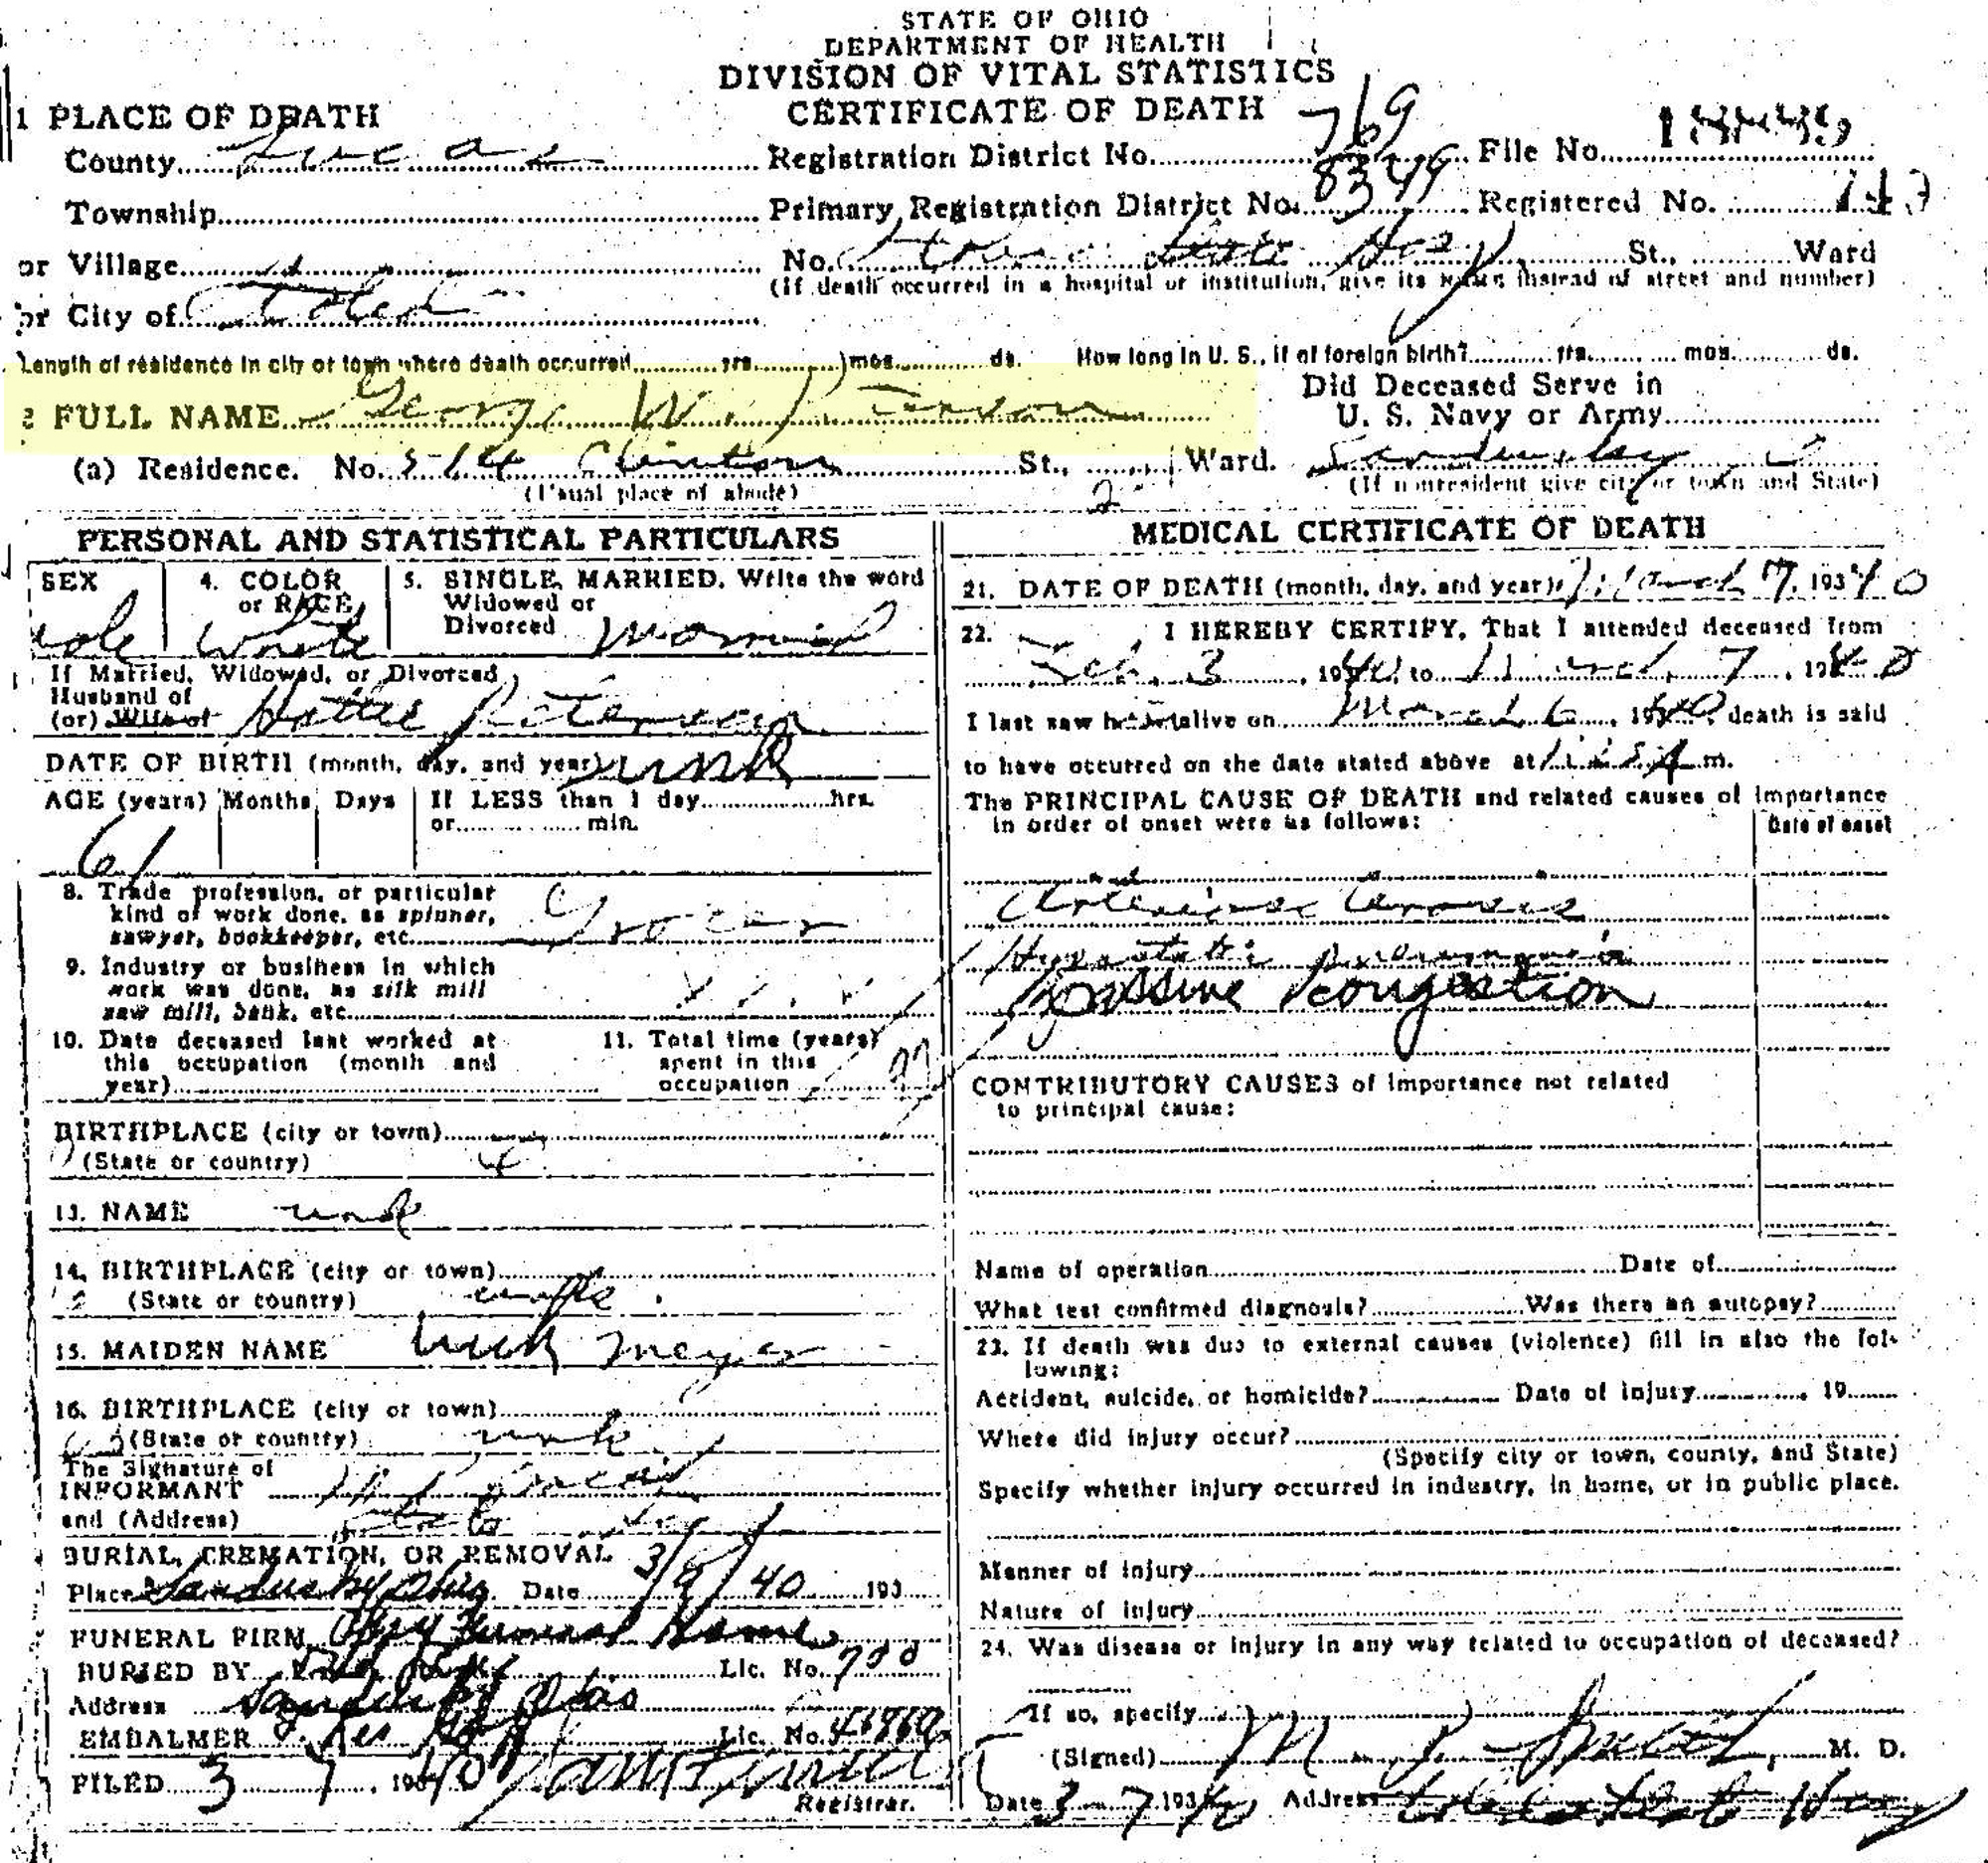 STATE OF OHIO
DEPARTMENT OF HEALTH
DIVISION OF VITAL STATISTICS
CERTIFICATE OF DEATH
1 PLACE OF DEATH
County Lucas Registration District No. 769 File No.
Township Primary Registration District No. 8349 Registered No.
or Village No. Toledo State Hosp St., Ward
(If death occurred in a hospital or institution, give its NAME instead of street and number)
or City of Toledo
Length of residence in city or town where death occurred yrs. mos. ds. How long in U. S., if of foreign birth? yrs. mos. ds.
2 FULL NAME George W.
Did Deceased Serve in
U. S. Navy or Army
(a) Residence. No. 514 Clinton St., Ward. Sandusky O
(Usual place of abode) (If nonresident give city or town and State)
2
PERSONAL AND STATISTICAL PARTICULARS
SEX 4. COLOR or RACE 5. SINGLE, MARRIED, Write the word
Widowed or
Divorced Married
White
If Married, Widowed, or Divorced
Husband of
(or) Wife of Hattie Peterson
DATE OF BIRTH (month, day, and year) unk
AGE (years) Months Days If LESS than 1 day hrs.
or min.
61
8. Trade profession, or particular
kind of work done, as spinner,
sawyer, bookkeeper, etc. Grocer
9. Industry or business in which
work was done, as silk mill
saw mill, bank, etc.
10. Date deceased last worked at
this occupation (month and
year)
11. Total time (years)
spent in this
occupation
BIRTHPLACE (city or town)
(State or country)
13. NAME unk
14. BIRTHPLACE (city or town)
(State or country) unk
15. MAIDEN NAME unk Meyer
16. BIRTHPLACE (city or town)
(State or country) unk
The Signature of
INFORMANT
and (Address)
BURIAL, CREMATION, OR REMOVAL
Place Sandusky Ohio Date 3/9/40 193
FUNERAL FIRM Funeral Home
BURIED BY Lic. No. 700
Address Sandusky Ohio
EMBALMER Lic. No.
FILED 3 7, 1940
Registrar.
MEDICAL CERTIFICATE OF DEATH
21. DATE OF DEATH (month, day, and year) March 7, 1940
22. I HEREBY CERTIFY, That I attended deceased from
Feb. 3, 1940, to March 7, 1940
I last saw him alive on March 6, 1940, death is said
to have occurred on the date stated above at m.
The PRINCIPAL CAUSE OF DEATH and related causes of importance
in order of onset were as follows:
Date of onset
Hypostatic pneumonia
passive congestion
CONTRIBUTORY CAUSES of importance not related
to principal cause:
Name of operation Date of
What test confirmed diagnosis? Was there an autopsy?
23. If death was due to external causes (violence) fill in also the fol-
lowing:
Accident, suicide, or homicide? Date of injury 19
Where did injury occur?
(Specify city or town, county, and State)
Specify whether injury occurred in industry, in home, or in public place.
Manner of injury
Nature of injury
24. Was disease or injury in any way related to occupation of deceased?
If so, specify
(Signed) M. D.
Date 3-7 1940 Address Toledo State Hosp